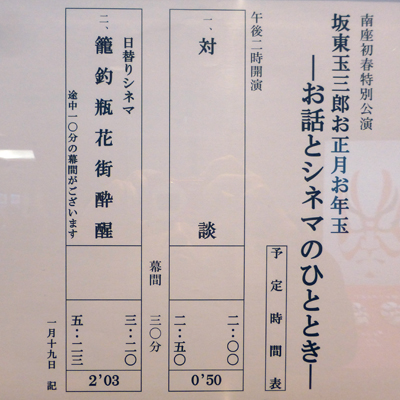 南座初春特別公演
坂東玉三郎お正月お年玉
―お話とシネマのひととき―
予定時間表
午後二時開演
一、対談
二・〇〇
二・五〇
0'50
幕間 三〇分
日替りシネマ
二、籠釣瓶花街酔醒
途中一〇分の幕間がございます
三・二〇
五・二三
2'03
一月十九日 記